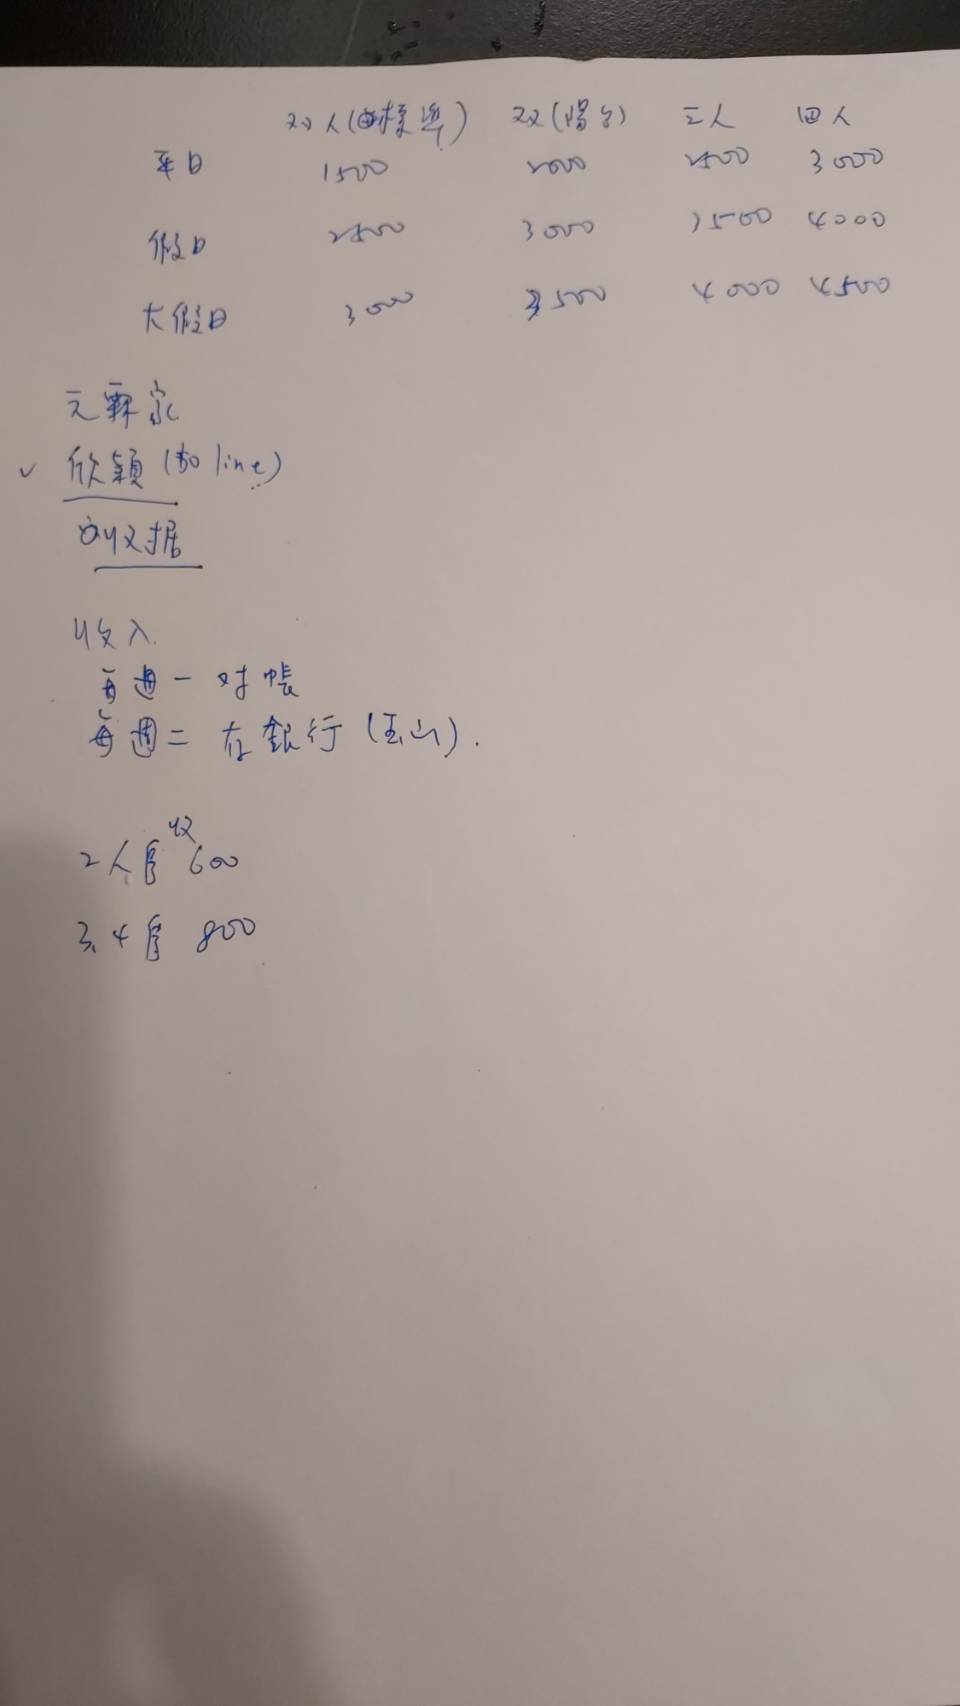 双人(標準) 双(陽台) 三人 四人
平日 1500 2000 2500 3000
假日 2500 3000 3500 4000
大假日 3000 3500 4000 4500
元霖家
欣穎(加line)
收据
收入.
每週一 对帳
每週二 存銀行(玉山).
2人房收600
3.4房 800